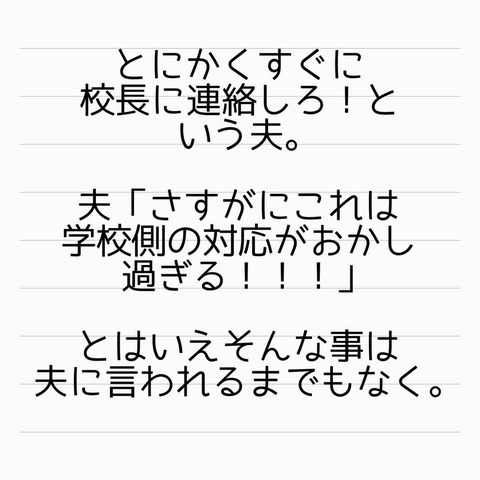 とにかくすぐに
校長に連絡しろ！と
いう夫。
夫「さすがにこれは
学校側の対応がおかし
過ぎる！！！」
とはいえそんな事は
夫に言われるまでもなく。